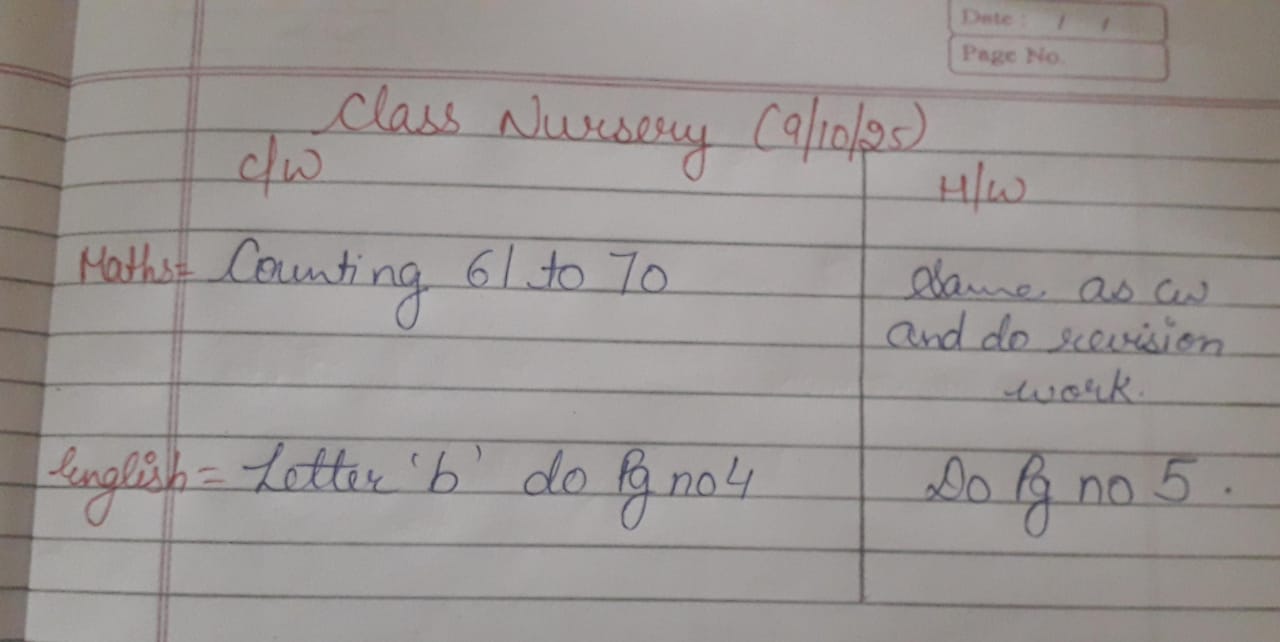 Date : / /
Page No.
Class Nursery (9/10/25)
C/W
H/W
Maths = Counting 61 to 70
Same as cw
and do revision
work.
English = Letter 'b' do Pg no 4
Do Pg no 5.